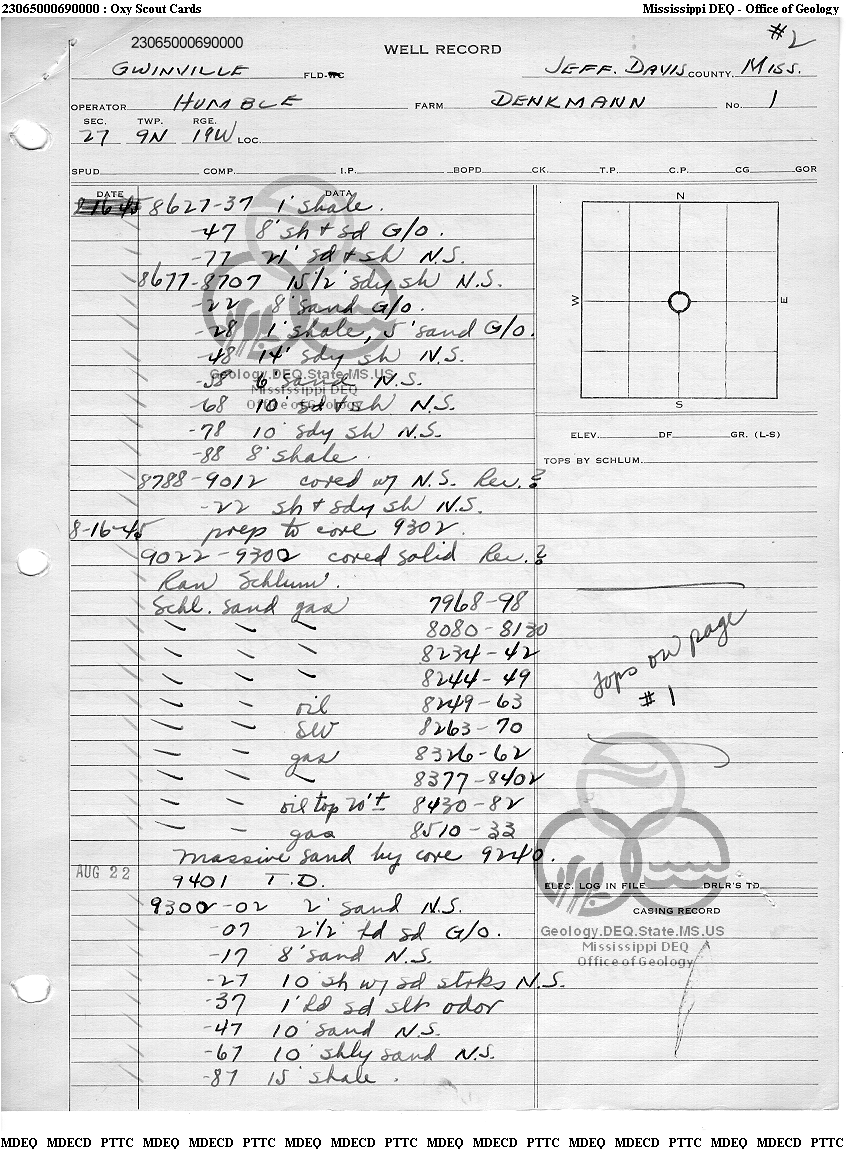 23065000690000 : Oxy Scout Cards Mississippi DEQ - Office of Geology
#2
23065000690000
WELL RECORD
GWINVILLE FLD-WC JEFF. DAVIS COUNTY, MISS.
OPERATOR HUMBLE FARM DENKMANN No. 1
SEC. TWP. RGE.
27 9N 19W LOC.
SPUD COMP. I.P. BOPD CK. T.P. C.P. CG GOR
DATE DATA
8-16-45 8627-37 1' shale.
-47 8' sh + sd G/O.
-77 21' sd + sh N.S.
8677-8707 15 1/2' sdy sh N.S.
-22 8' sand G/O.
-28 1' shale, 5' sand G/O.
-48 14' sdy sh N.S.
-58 6' sand N.S.
-68 10' sd + sh N.S.
-78 10' sdy sh N.S.
-88 8' shale.
8788-9012 cored w/ N.S. Rec. ?
-22 sh + sdy sh N.S.
8-16-45 prep to core 9302.
9022-9300 cored solid Rec. ?
Ran Schlum.
Schl. sand gas 7968-98
" " " 8080-8130
" " " 8234-42
" " " 8244-49
" " oil 8249-63
" " SW 8263-70
" " gas 8326-62
" " " 8377-8402
" " oil top 20'± 8430-82
" " gas 8510-33
Massive sand by core 9240.
AUG 22 9401 T.D.
9300-02 2' sand N.S.
-07 2 1/2' hd sd G/O.
-17 8' sand N.S.
-27 10' sh w/ sd strks N.S.
-37 1' hd sd slt odor
-47 10' sand N.S.
-67 10' shly sand N.S.
-87 15' shale.
N
W E
S
ELEV. DF. GR. (L-S)
TOPS BY SCHLUM.
tops on page
#1
ELEC. LOG IN FILE DRLR'S TD
CASING RECORD
Geology.DEQ.State.MS.US
Mississippi DEQ
Office of Geology
Geology.DEQ.State.MS.US
Mississippi DEQ
Office of Geology
MDEQ MDECD PTTC MDEQ MDECD PTTC MDEQ MDECD PTTC MDEQ MDECD PTTC MDEQ MDECD PTTC MDEQ MDECD PTTC